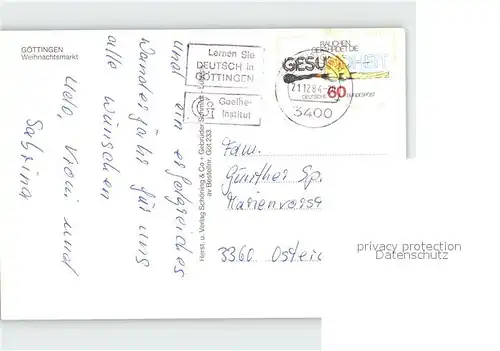 GÖTTINGEN
Weihnachtsmarkt
Lernen Sie
DEUTSCH in
GÖTTINGEN
Goethe-
Institut
RAUCHEN
GEFÄHRDET DIE
GESUNDHEIT
60
DEUTSCHE BUNDESPOST
21.12.84
3400
und ein erfolgreiches
Wanderjahr für uns
alle wünschen
Udo, Vroni und
Sabrina
Herst. u. Verlag Schöning & Co + Gebrüder Schmidt
Bestellnr. Göt 233
Fam.
Günther Sp.
Marienvorst
3360 Osterr
privacy protection
Datenschutz